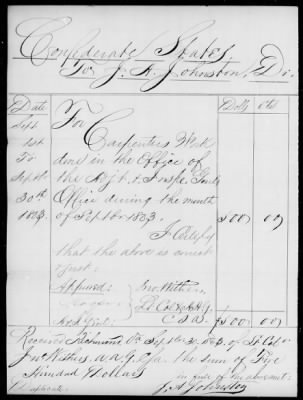 Confederate States
To J. A. Johnston, Dr.
Date Dolls Cts
Sept 1st To Sept 30th 1863
For Carpenters Work
done in the Office of
the Adjt. & Inspr. Genls
Office during the month
of Septbr 1863. $500 00
I Certify
that the above is correct
& just.
Approved: Jno Withers
Lt Col & A.A.G.
C.S.A. $500 00
Received Richmond Va Sept 30 1863, of Lt Col
Jno Withers A.A.G. the sum of Five
Hundred Dollars in full of the above acct:
Duplicate. J. A. Johnston